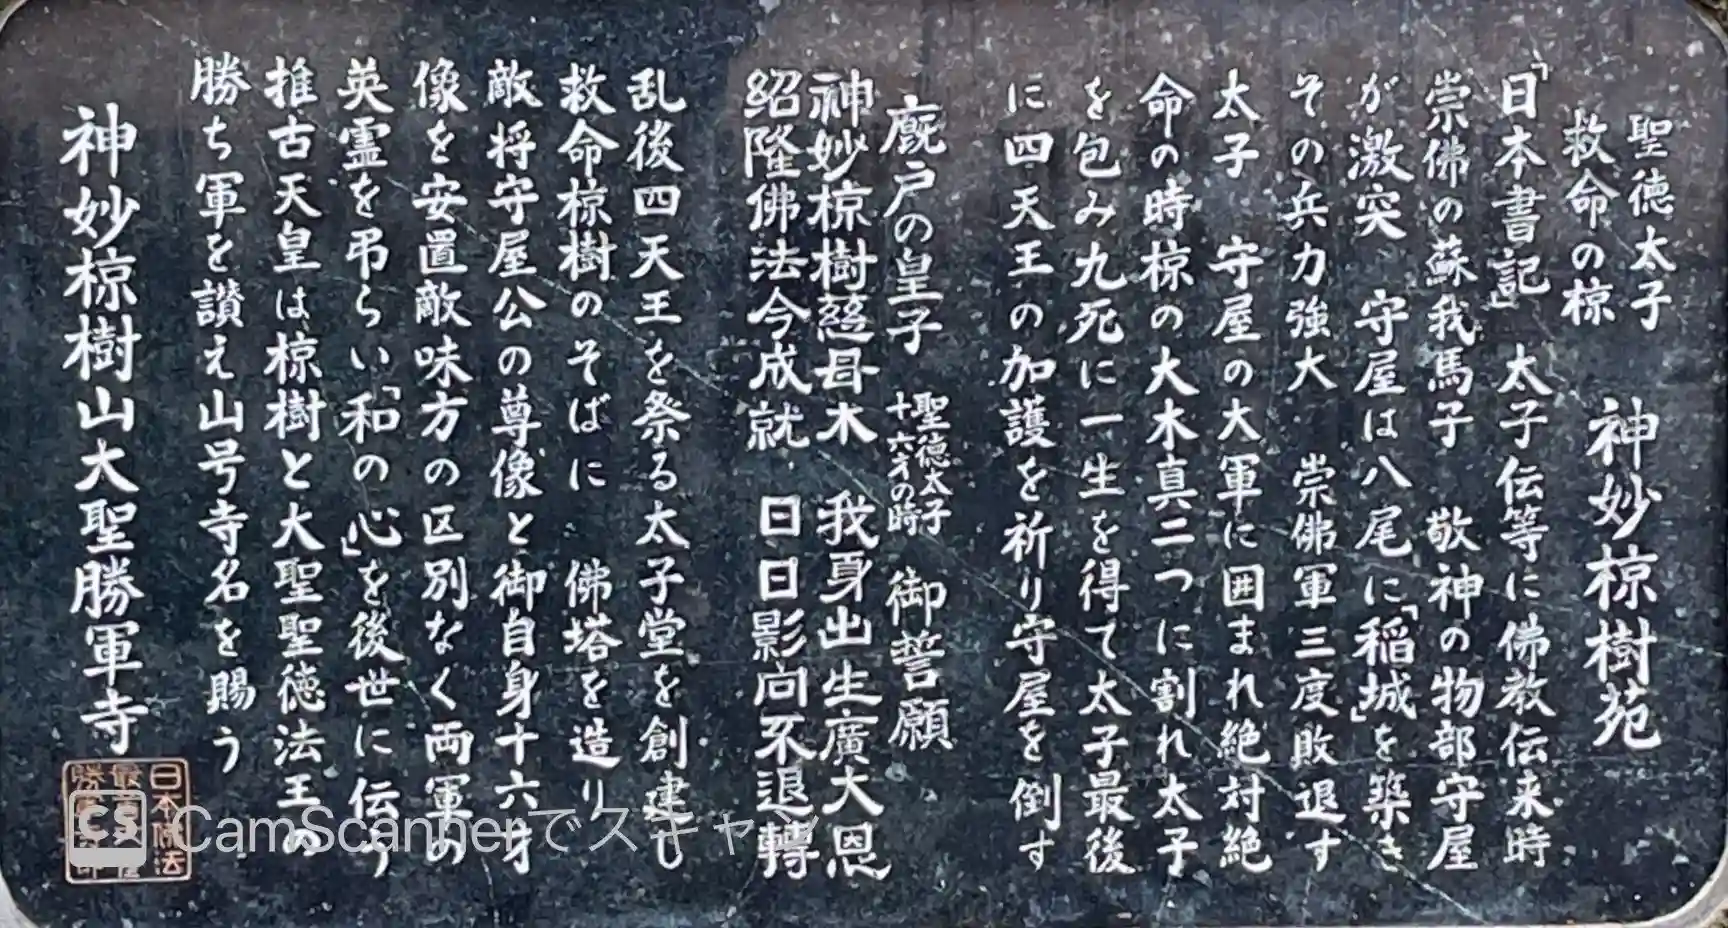 聖徳太子
救命の椋　神妙椋樹苑
「日本書記」　太子伝等に佛教伝来時
崇佛の蘇我馬子　敬神の物部守屋
が激突　守屋は八尾に「稲城」を築き
その兵力強大　崇佛軍三度敗退す
太子　守屋の大軍に囲まれ絶対絶
命の時椋の大木真二つに割れ太子
を包み九死に一生を得て太子最後
に四天王の加護を祈り守屋を倒す
厩戸の皇子　聖徳太子十六才の時　御誓願
神妙椋樹慈母木　我身出生廣大恩
紹隆佛法今成就　日日影向不退轉
乱後四天王を祭る太子堂を創建し
救命椋樹のそばに　佛塔を造り
敵将守屋公の尊像と御自身十六才
像を安置敵味方の区別なく両軍の
英霊を弔らい「和の心」を後世に伝う
推古天皇は椋樹と大聖聖徳法王の
勝ち軍を讃え山号寺名を賜う
神妙椋樹山大聖勝軍寺
日本佛法
CS CamScannerでスキャン